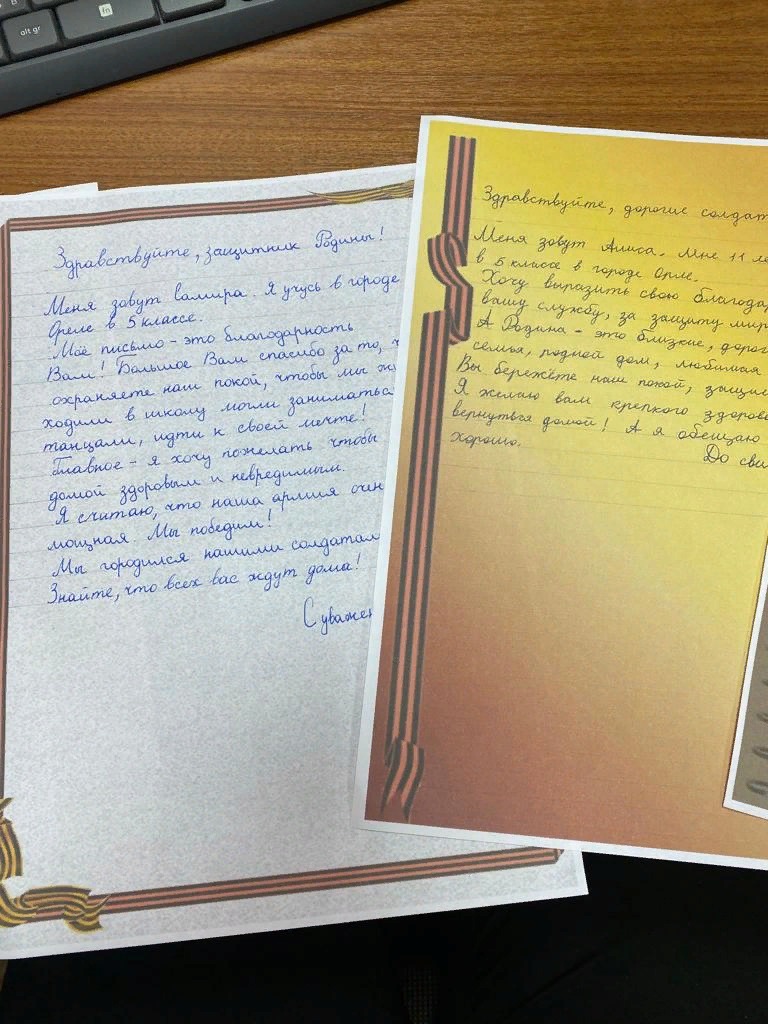 alt gr
fn
Здравствуйте, защитник Родины!
Меня зовут Самира. Я учусь в городе
Орле в 5 классе.
Моё письмо - это благодарность
Вам! Большое Вам спасибо за то, ч
охраняете наш покой, чтобы мы
ходили в школу могли заниматься
танцами, идти к своей мечте!
Главное - я хочу пожелать чтобы
домой здоровым и невредимым.
Я считаю, что наша армия очен
мощная. Мы победим!
Мы городился нашими солдатам
Знайте, что всех вас ждут дома!
С уважен
Здравствуйте, дорогие солдат
Меня зовут Алиса. Мне 11 ле
в 5 классе в городе Орле.
Хочу выразить свою благодар
вашу службу, за защиту мир
А Родина - это близкие, дорог
семья, родной дом, любимая
Вы бережёте наш покой, защищ
Я желаю вам крепкого здоров
вернуться домой! А я обещаю
хорошо.
До сви